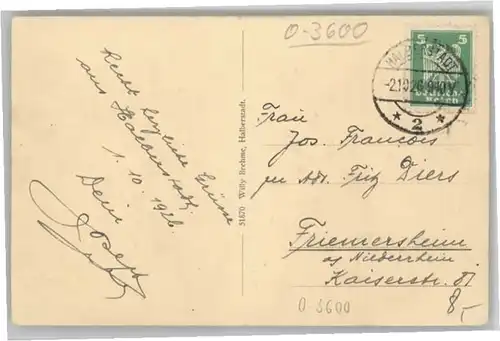 O-3600
Recht herzliche Grüsse
aus Halberstadt,
1. 10. 1926.
Dein
Josef
31870 Willy Brehme, Halberstadt.
5
HALBERSTADT
-2.10.26. 9-10 V.
* 2 *
Frau
Jos. Francois
per Adr. Fritz Diers
Friemersheim
a/ Niederrhein
Kaiserstr. 81
O-3600
8,-